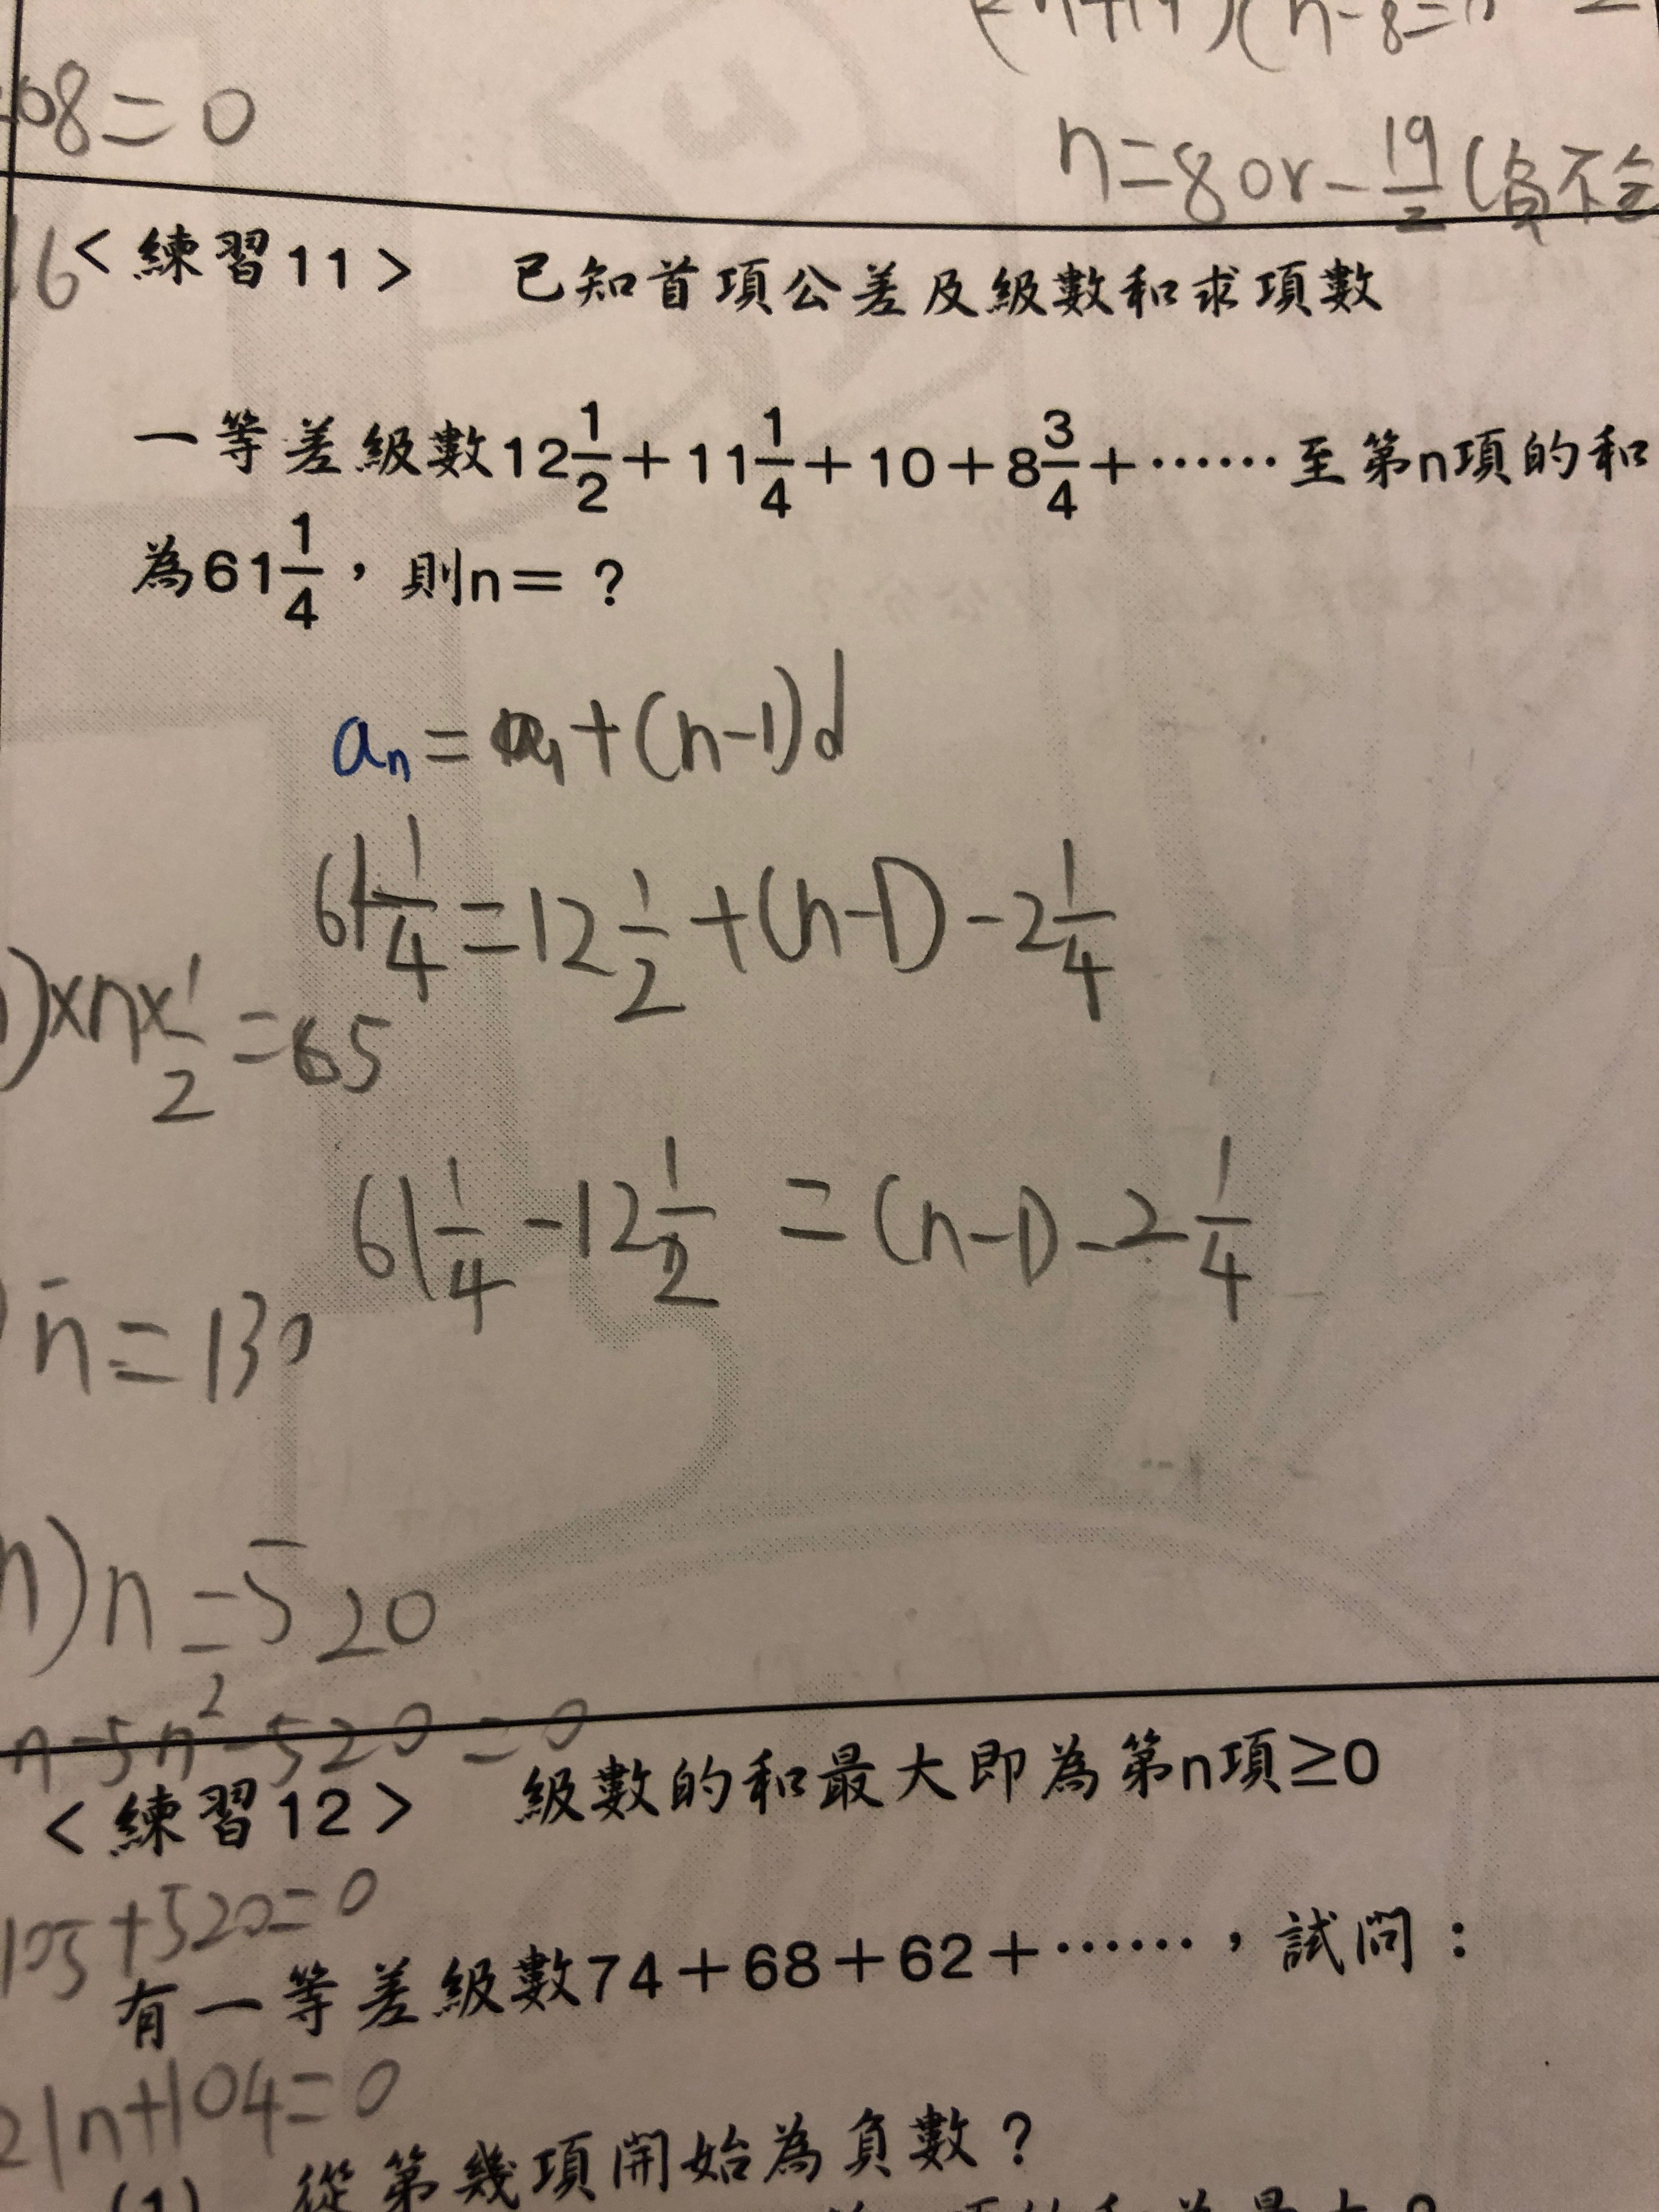 n-8=0
08=0
n=8 or -19/2 (負不合
16
<練習11> 已知首項公差及級數和求項數
一等差級數12 1/2+11 1/4+10+8 3/4+⋯⋯至第n項的和
為61 1/4，則n=？
an=a1+(n-1)d
61 1/4=12 1/2+(n-1)-2 1/4
)×n×1/2=65
61 1/4-12 1/2=(n-1)-2 1/4
n=130
n)n=520
n-5n²-520=0
<練習12> 級數的和最大即為第n項≥0
105+520=0
有一等差級數74+68+62+⋯⋯，試問：
21n+104=0
(1) 從第幾項開始為負數？